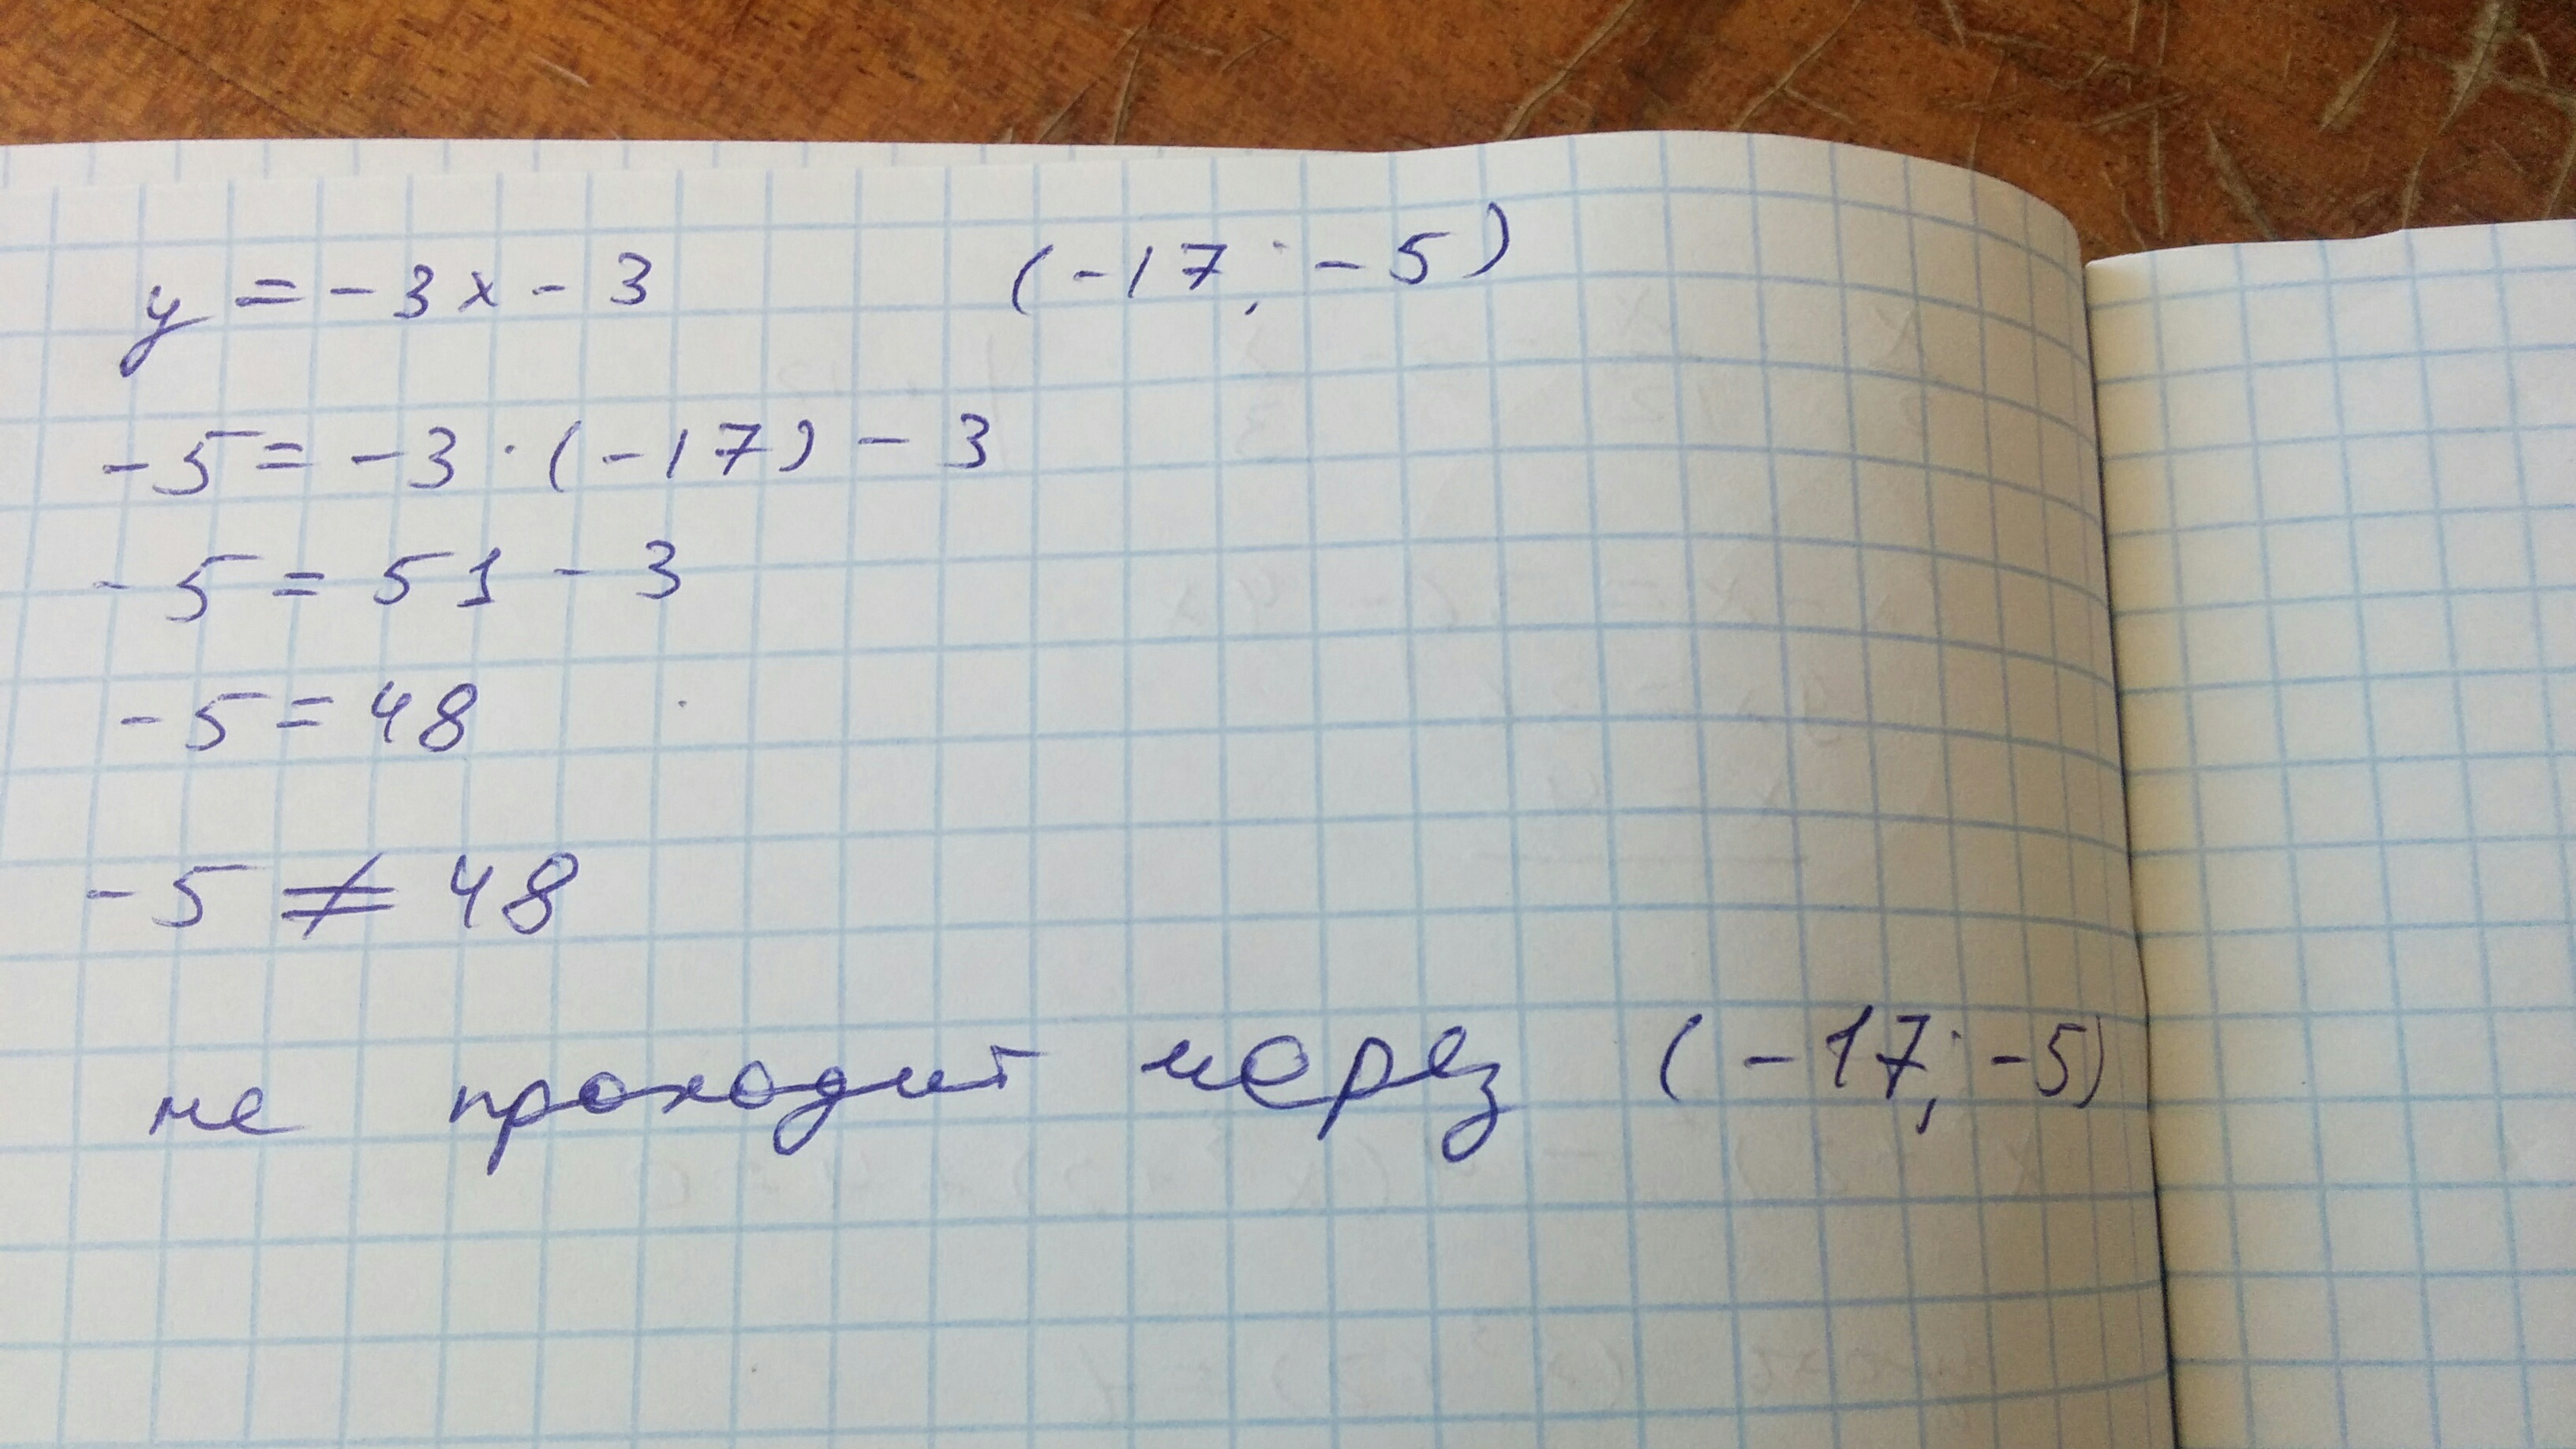 y = -3x - 3 (-17; -5)
-5 = -3 · (-17) - 3
-5 = 51 - 3
-5 = 48
-5 ≠ 48
не проходит через (-17; -5)